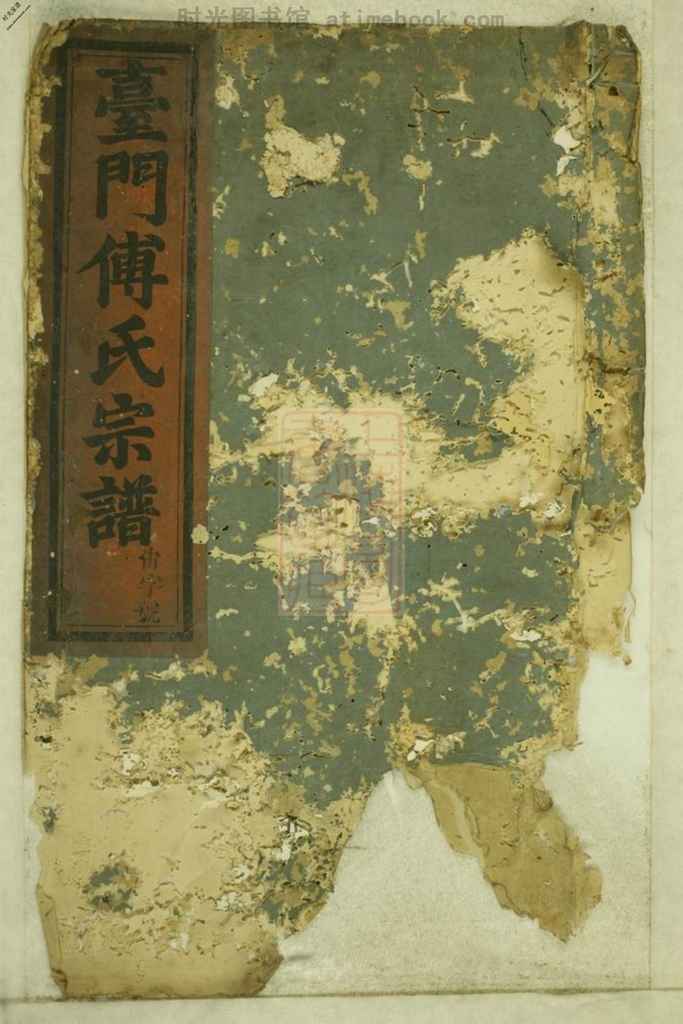 时光图书馆 atimebook.com
臺門傅氏宗譜